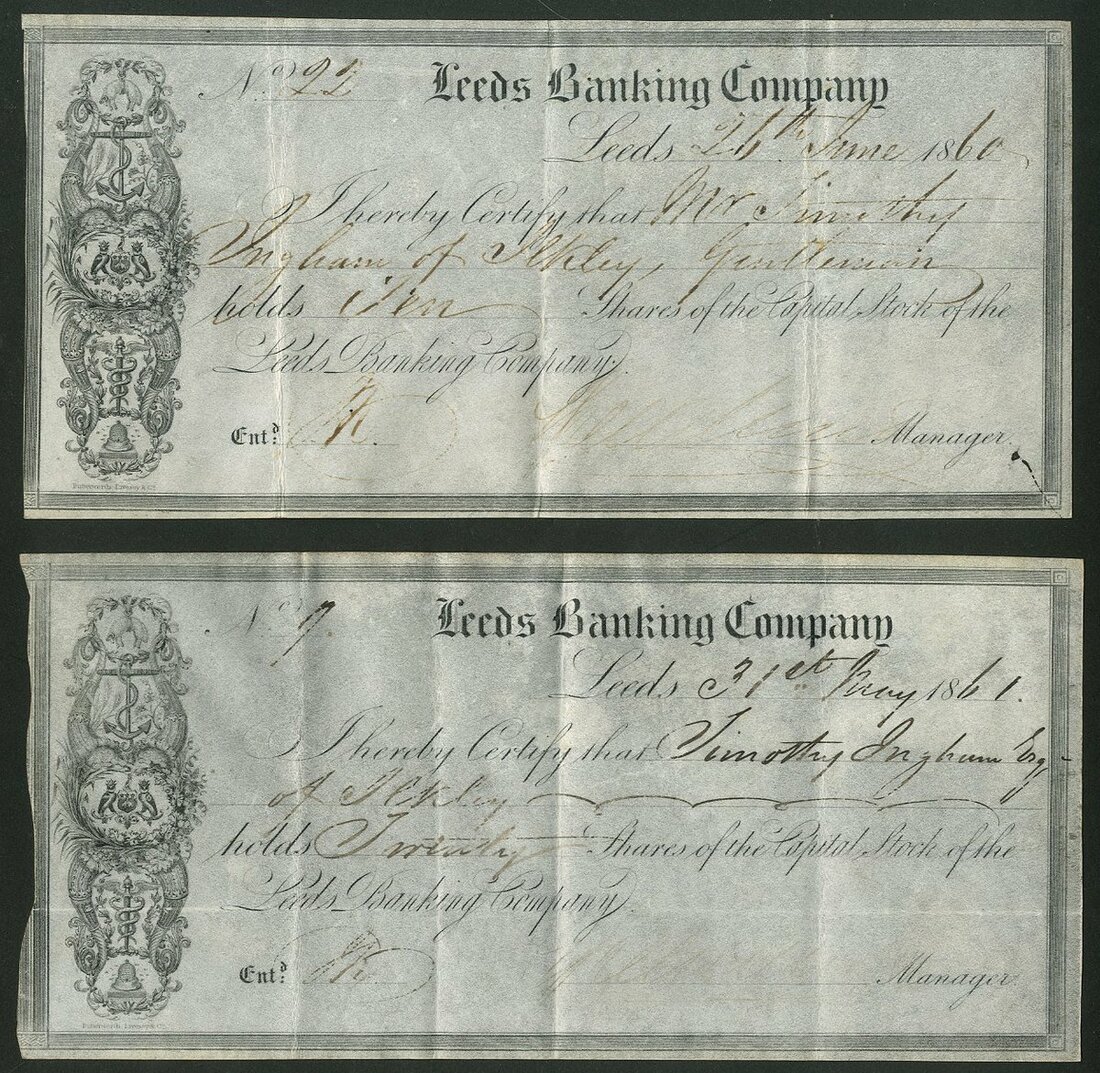 No. 22 Leeds Banking Company
Leeds 26th June 1860
I hereby Certify that Mr Timothy
Ingham of Ilkley, Gentleman
holds Ten Shares of the Capital Stock of the
Leeds Banking Company.
Entd. Manager.
Butterworth, Livesey & Co.
No. 9. Leeds Banking Company
Leeds 31st May 1861.
I hereby Certify that Timothy Ingham Esq.
of Ilkley
holds Twenty Shares of the Capital Stock of the
Leeds Banking Company.
Entd. Manager.
Butterworth, Livesey & Co.